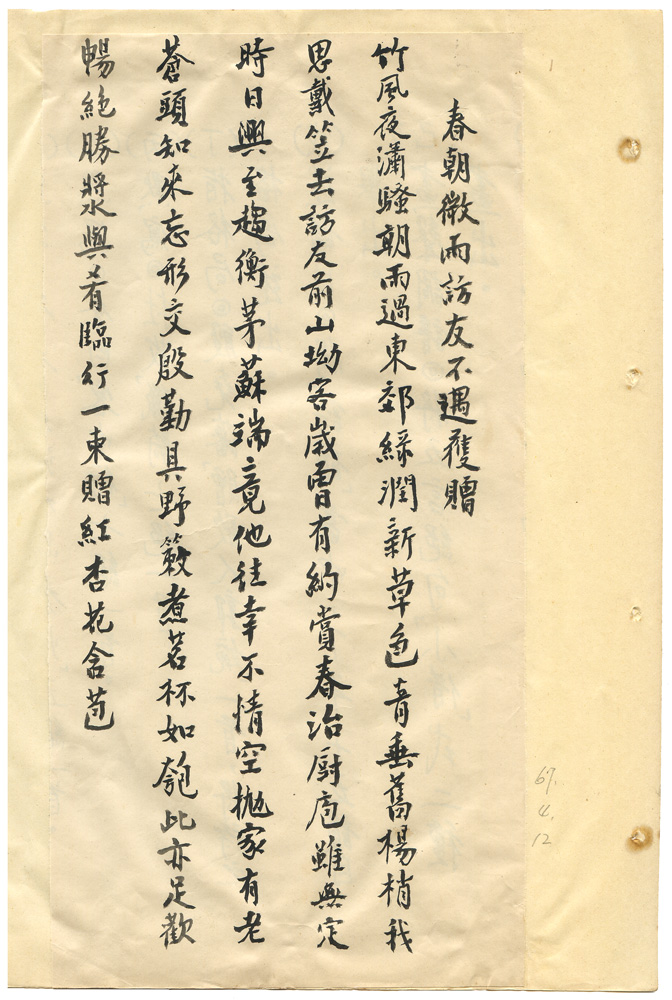 春朝微雨訪友不遇獲贈
竹風夜瀟騷朝雨過東郊綠潤新草色青垂舊楊梢我
思戴笠去訪友前山坳客歲曾有約賞春治厨庖雖無定
時日興至趨衡茅蘇端竟他往幸不情空拋家有老
蒼頭知來忘形交殷勤具野簌煮茗杯如匏此亦足歡
暢絕勝漿與肴臨行一束贈紅杏花含苞
67.
4.
12